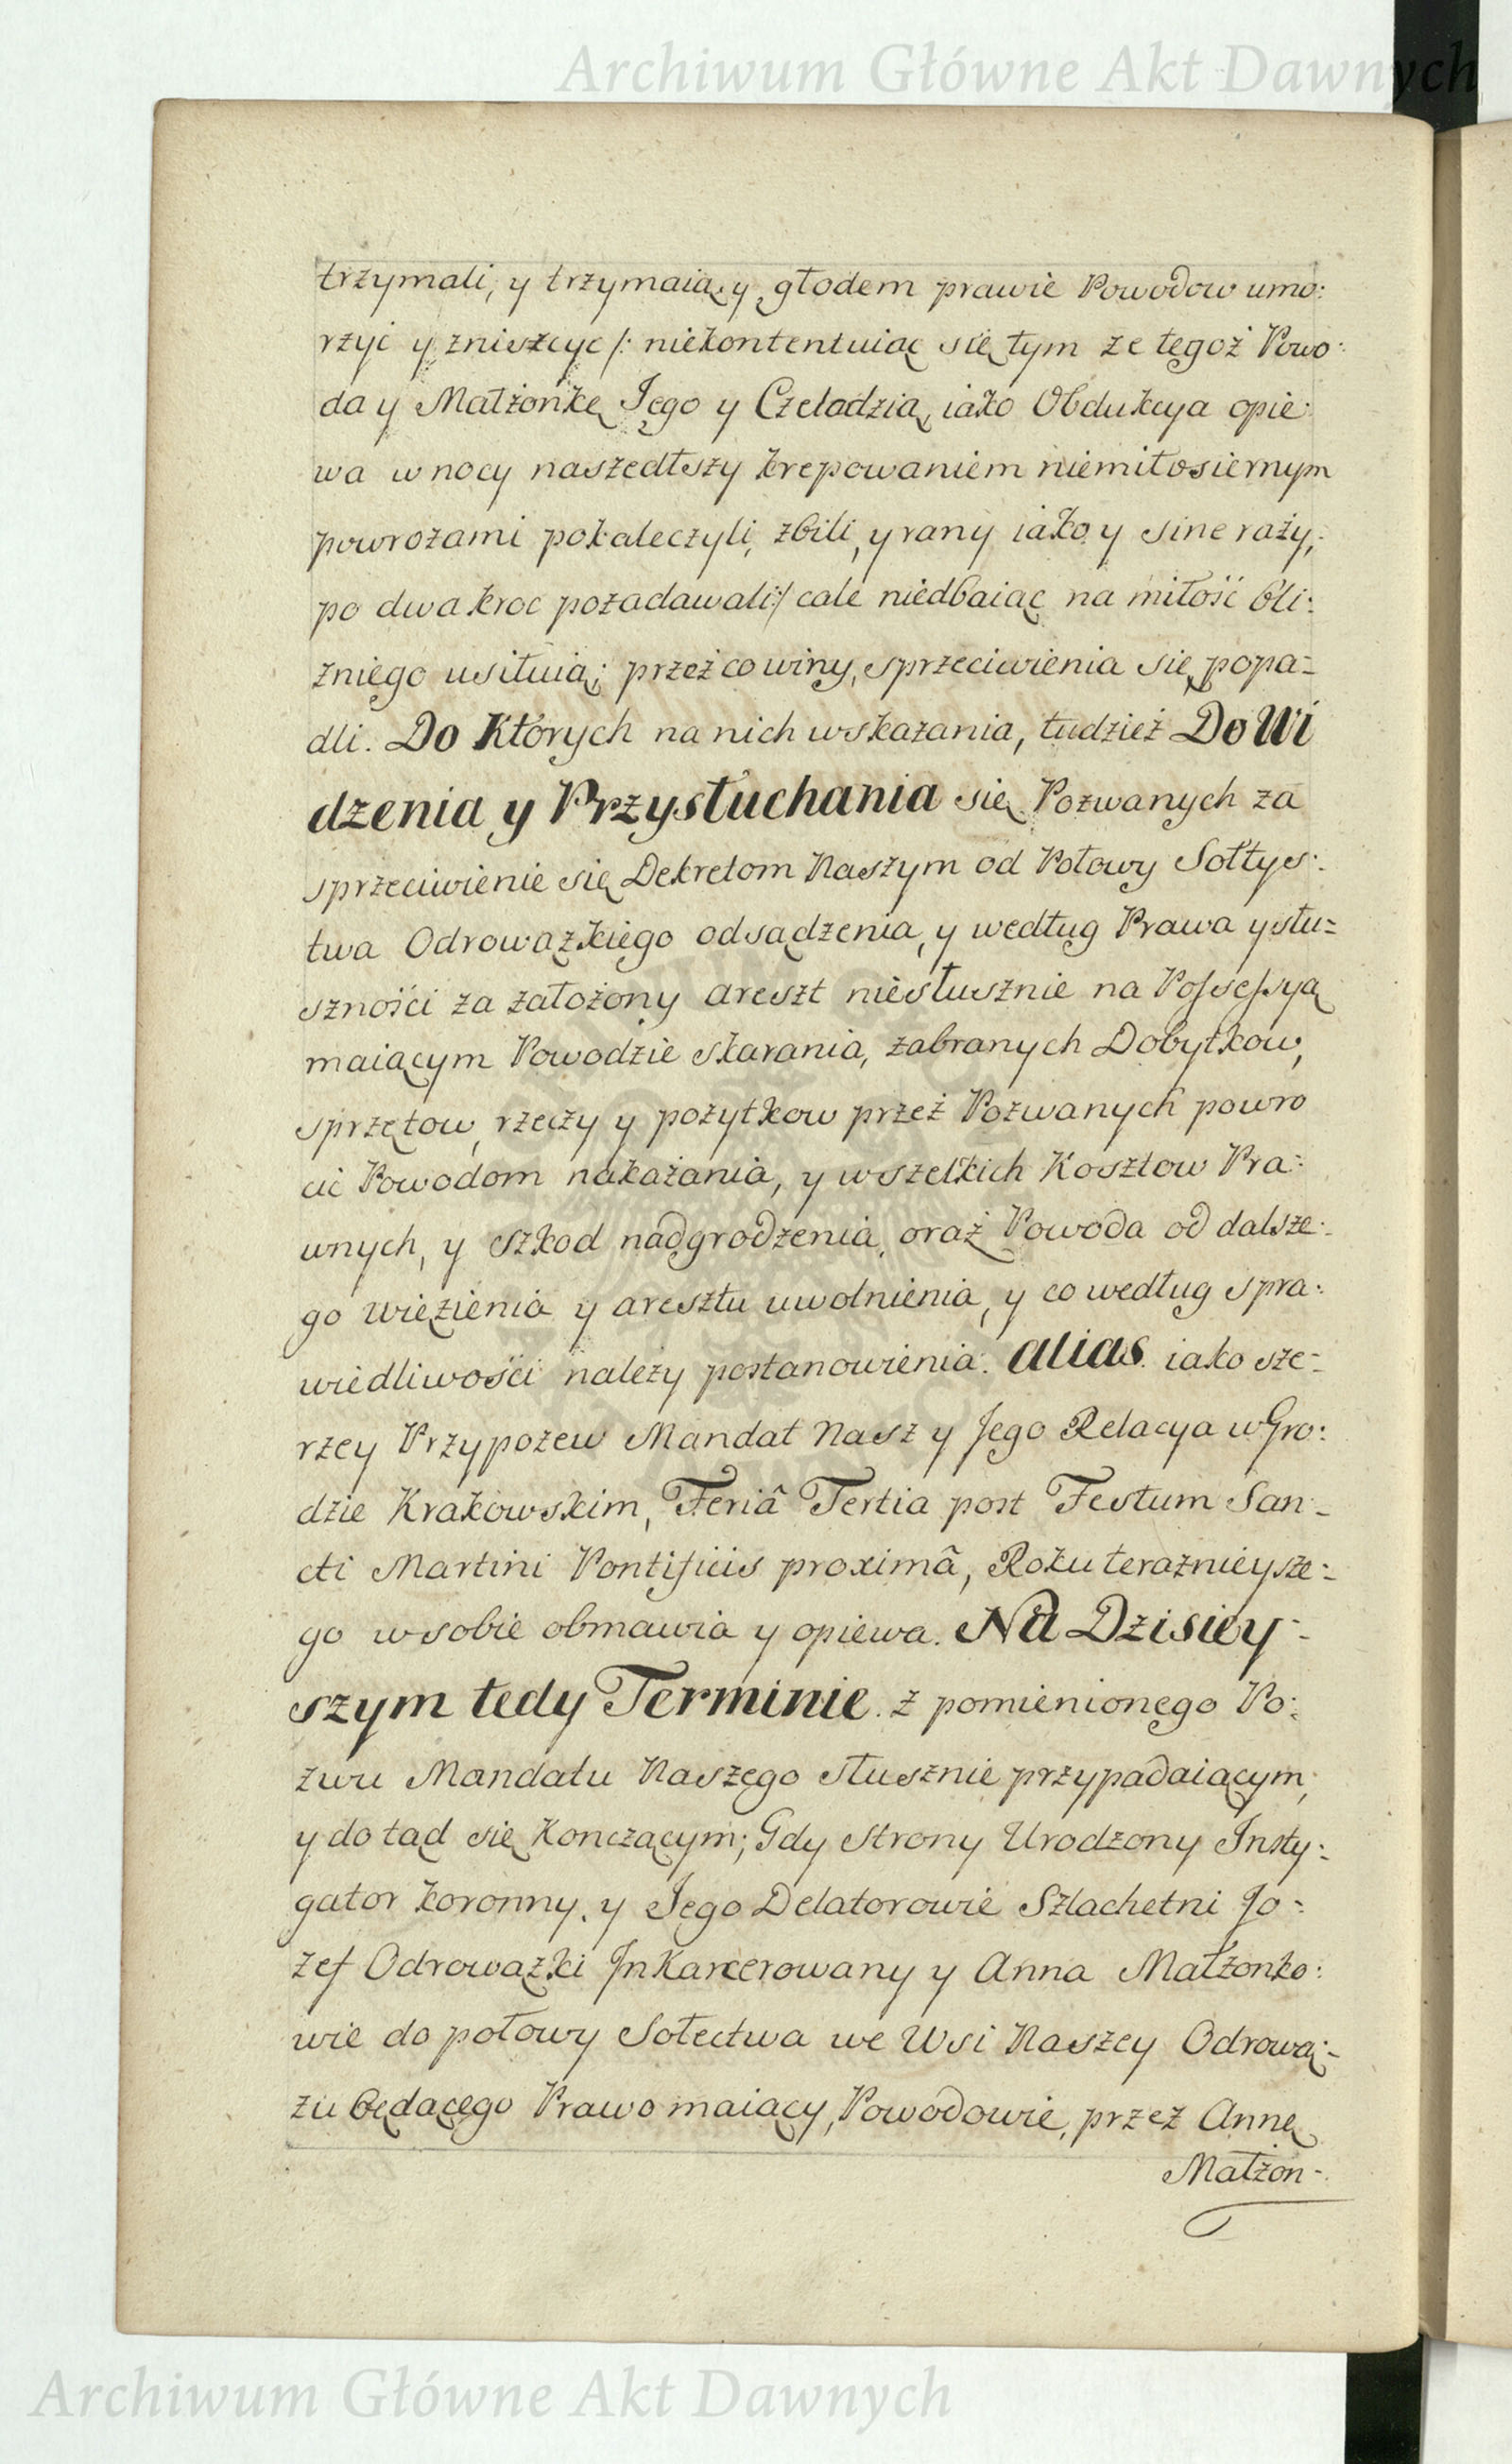 Archiwum Główne Akt Dawnych
trzymali, y trzymaią, y głodem prawie Powodow umo:
rzyć y zniszcyć /: niekontentuiąc się tym że tegoż Powo:
da y Małżonkę Jego y Czeladzią, iako Obdukcya opie:
wa w nocy naszedłszy krepowaniem niemiłosiernym
powrozami pokaleczyli, zbili, y rany iako y sine razy,
po dwa kroc pozadawali :/ cale niedbaiąc na miłość bli:
zniego usiłuią; przez co winy, sprzeciwienia się popa=
dli. Do Których na nich wskazania, tudzież Do Wi
dzenia y Przysłuchania się Pozwanych za
sprzeciwienie się Dekretom Naszym od Połowy Sołtys:
twa Odrowązkiego odsądzenia, y według Prawa y słu=
szności za założony areszt niesłusznie na Possessyą
maiącym Powodzie skarania, zabranych Dobytkow,
sprzętow, rzeczy y pożytkow przez Pozwanych powro
cić Powodom nakazania, y wszelkich Kosztow Pra:
wnych, y szkod nadgrodzenia, oraz Powoda od dalsze:
go więzienia y aresztu uwolnienia, y co według spra:
wiedliwości należy postanowienia. alias iako sze=
rzey Przypozew Mandat Nasz y Jego Relacya w Gro:
dzie Krakowskim, Feriâ Tertia post Festum San-
cti Martini Pontificis proximâ, Roku teraznieysze=
go w sobie obmawia y opiewa. Na Dzisiey-
szym tedy Terminie z pomienionego Po:
zwu Mandatu Naszego słusznie przypadaiącym,
y do tąd się Konczącym; Gdy Strony Urodzony Insty:
gator koronny, y Jego Delatorowie Szlachetni Jo=
zef Odrowązki InKarcerowany y Anna Małżonko:
wie do połowy Sołectwa we Wsi Naszey Odrową:
zu będącego Prawo maiący, Powodowie, przez Annę
Małżon-
Archiwum Główne Akt Dawnych